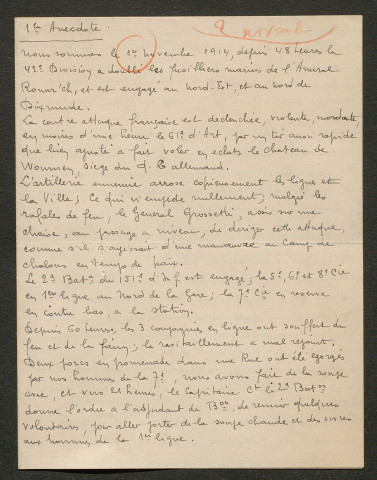 1ère Anecdote.
2 novembre
Nous sommes le 1er novembre 1914, depuis 48 heures la
42e Division a doublé les fusilliers marins de l'Amiral
Ronar'ch, et est engagé au nord-Est, et au nord de
Dixmude.
La contre attaque française est déclenchée, violente, mordante
en moins d'une heure le 61e d'Art, par un tir aussi rapide
que bien ajusté a fait voler en éclats le chateau de
Woumen, siège du q. G allemand.
L'artillerie ennemie arrose copieusement les lignes et
la Ville; ce qui n'empêche nullement; malgré les
rafales de feu, le Général Grossetti, assis sur une
chaise, au passage à niveau, de diriger cette attaque,
comme s'il s'agissait d'une manœuvre au camp de
chalons en temps de paix.
Le 2e Baton du 151e d'Inf est engagé; la 5e, 6e et 8e Cie
en 1ère ligne au Nord de la Gare; la 7e Cie en réserve
en contre bas, à la station.
Depuis 60 heures, les 3 compagnies en ligne ont souffert du
feu et de la faim; le ravitaillement a mal rejoint.
Deux porcs en promenade dans une Rue ont été égorgés
par nos hommes de la 7e, nous avons fait de la soupe
avec, et vers 16 heures, le Capitaine Ct le 2e Baton
donne l'ordre à l'adjudant de Bon, de réunir quelques
volontaires, pour aller porter de la soupe chaude et des vivres
aux hommes de la 1ère ligne.